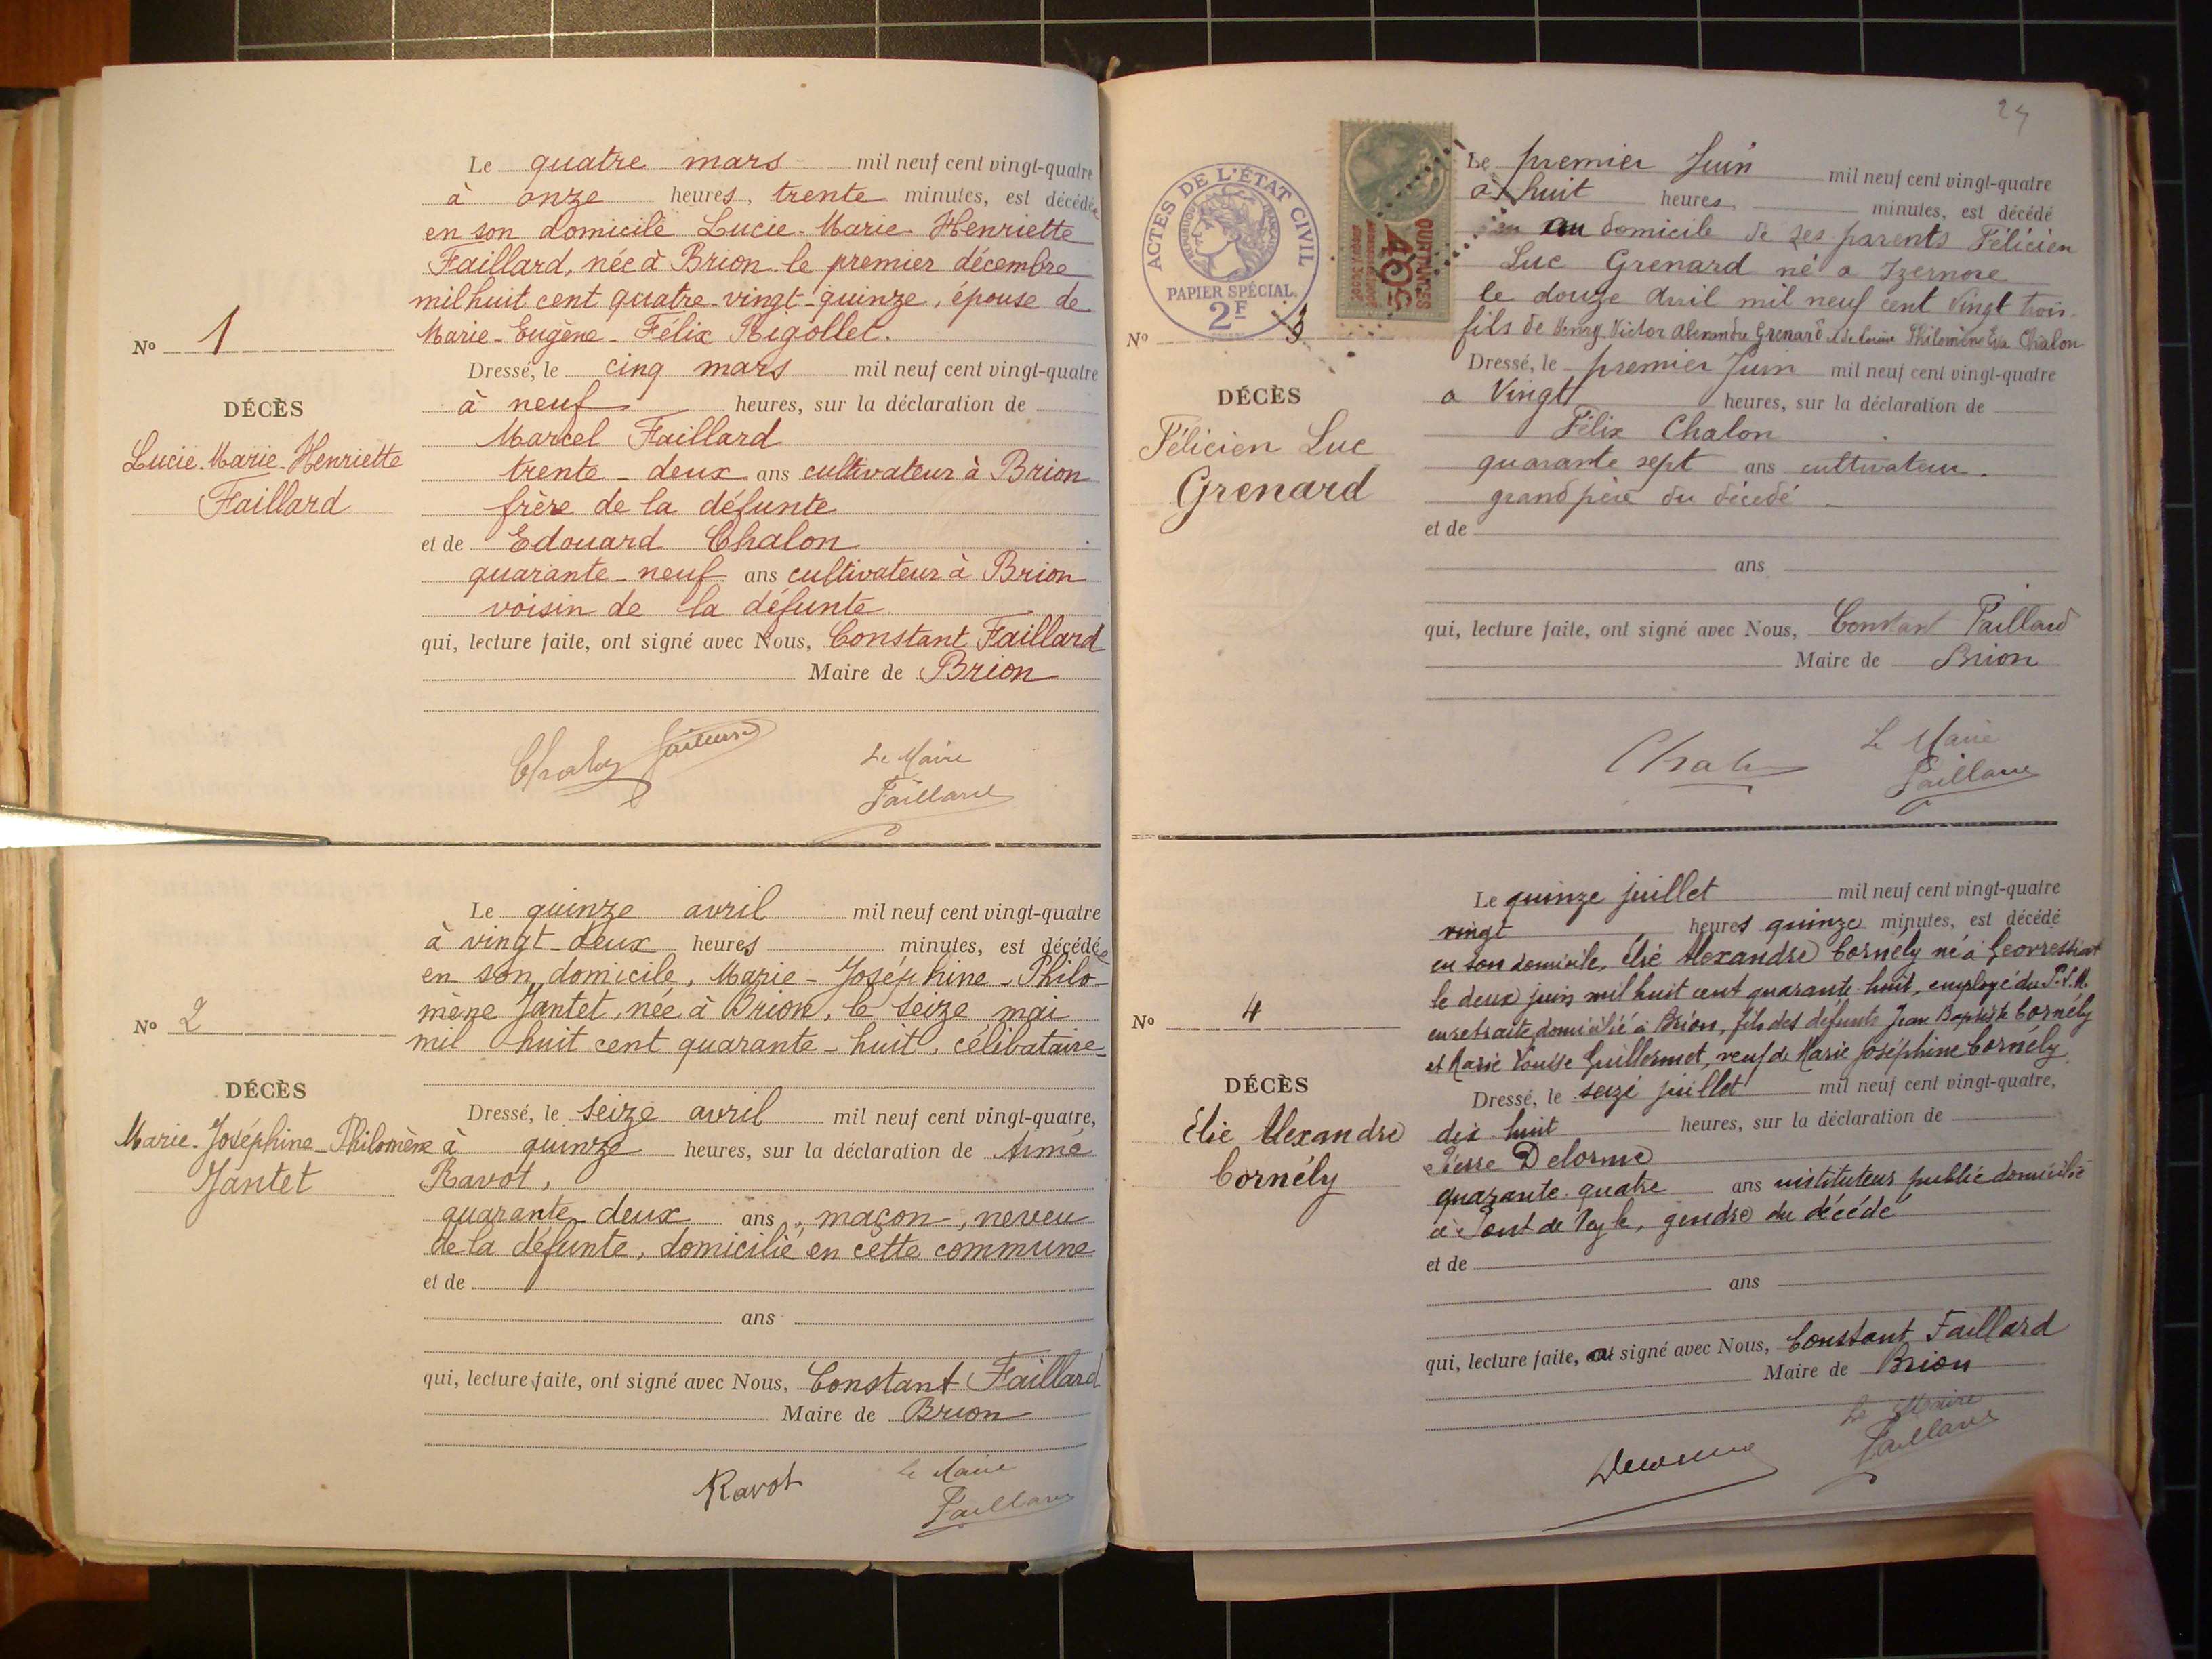 Le quatre mars mil neuf cent vingt-quatre
à onze heures, trente minutes, est décédée
en son domicile Lucie-Marie-Henriette
Faillard, née à Brion le premier décembre
mil huit cent quatre-vingt-quinze, épouse de
Marie-Eugène-Félix Rigollet.
N° 1
Dressé, le cinq mars mil neuf cent vingt-quatre
DÉCÈS
à neuf heures, sur la déclaration de
Marcel Faillard
Lucie-Marie-Henriette
Faillard
trente-deux ans cultivateur à Brion
frère de la défunte
et de Edouard Chalon
quarante-neuf ans cultivateur à Brion
voisin de la défunte
qui, lecture faite, ont signé avec Nous, Constant Faillard
Maire de Brion
Chalon Faillard
Le Maire
Faillard
Le quinze avril mil neuf cent vingt-quatre
à vingt-deux heures minutes, est décédée
en son domicile, Marie-Joséphine-Philo-
mène Jantet, née à Brion, le seize mai
mil huit cent quarante-huit, célibataire
N° 2
DÉCÈS
Marie-Joséphine-Philomène
Jantet
Dressé, le seize avril mil neuf cent vingt-quatre,
à quinze heures, sur la déclaration de Aimé
Ravot,
quarante-deux ans, maçon, neveu
de la défunte, domicilié en cette commune
et de
ans
qui, lecture faite, ont signé avec Nous, Constant Faillard
Maire de Brion
Ravot
Le Maire
Faillard
ACTES DE L'ÉTAT CIVIL
RÉPUBLIQUE FRANÇAISE
PAPIER SPÉCIAL
2F
QUITTANCES
Le premier Juin mil neuf cent vingt-quatre
à huit heures minutes, est décédé
au domicile de ses parents Félicien
Luc Grenard né a Izernore
le douze Avril mil neuf cent Vingt trois
fils de Henry Victor Alexandre Grenard et de Philomène Eva Chalon
N° 3
DÉCÈS
Félicien Luc
Grenard
Dressé, le premier Juin mil neuf cent vingt-quatre
a Vingt heures, sur la déclaration de
Félix Chalon
quarante sept ans cultivateur.
grand père du décédé
et de
ans
qui, lecture faite, ont signé avec Nous, Constant Faillard
Maire de Brion
Chalon
Le Maire
Faillard
Le quinze juillet mil neuf cent vingt-quatre
vingt heures quinze minutes, est décédé
en son domicile, Élie Alexandre Cornély né à Géovressiat
le deux juin mil huit cent quarante-huit, employé du P.L.M.
en retraite domicilié à Brion, fils des défunts Jean Baptiste Cornély
et Marie Louise Guillermet, veuf de Marie Joséphine Cornély
N° 4
DÉCÈS
Élie Alexandre
Cornély
Dressé, le seize juillet mil neuf cent vingt-quatre,
dix-huit heures, sur la déclaration de
Pierre Delorme
quarante-quatre ans instituteur public domicilié
à Pont de Veyle, gendre du décédé
et de
ans
qui, lecture faite, a signé avec Nous, Constant Faillard
Maire de Brion
Delorme
Le Maire
Faillard